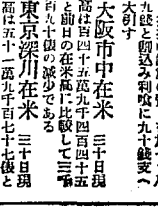 九銭と割込み利喰に九十銭支へ
大引す
大阪市中在米 三十日現
高は百四十五萬九千四百四十五
と前日の在米高に比較して三千
百九十俵の減少である
東京深川在米 三十日現
高は五十一萬九千百七十七俵と